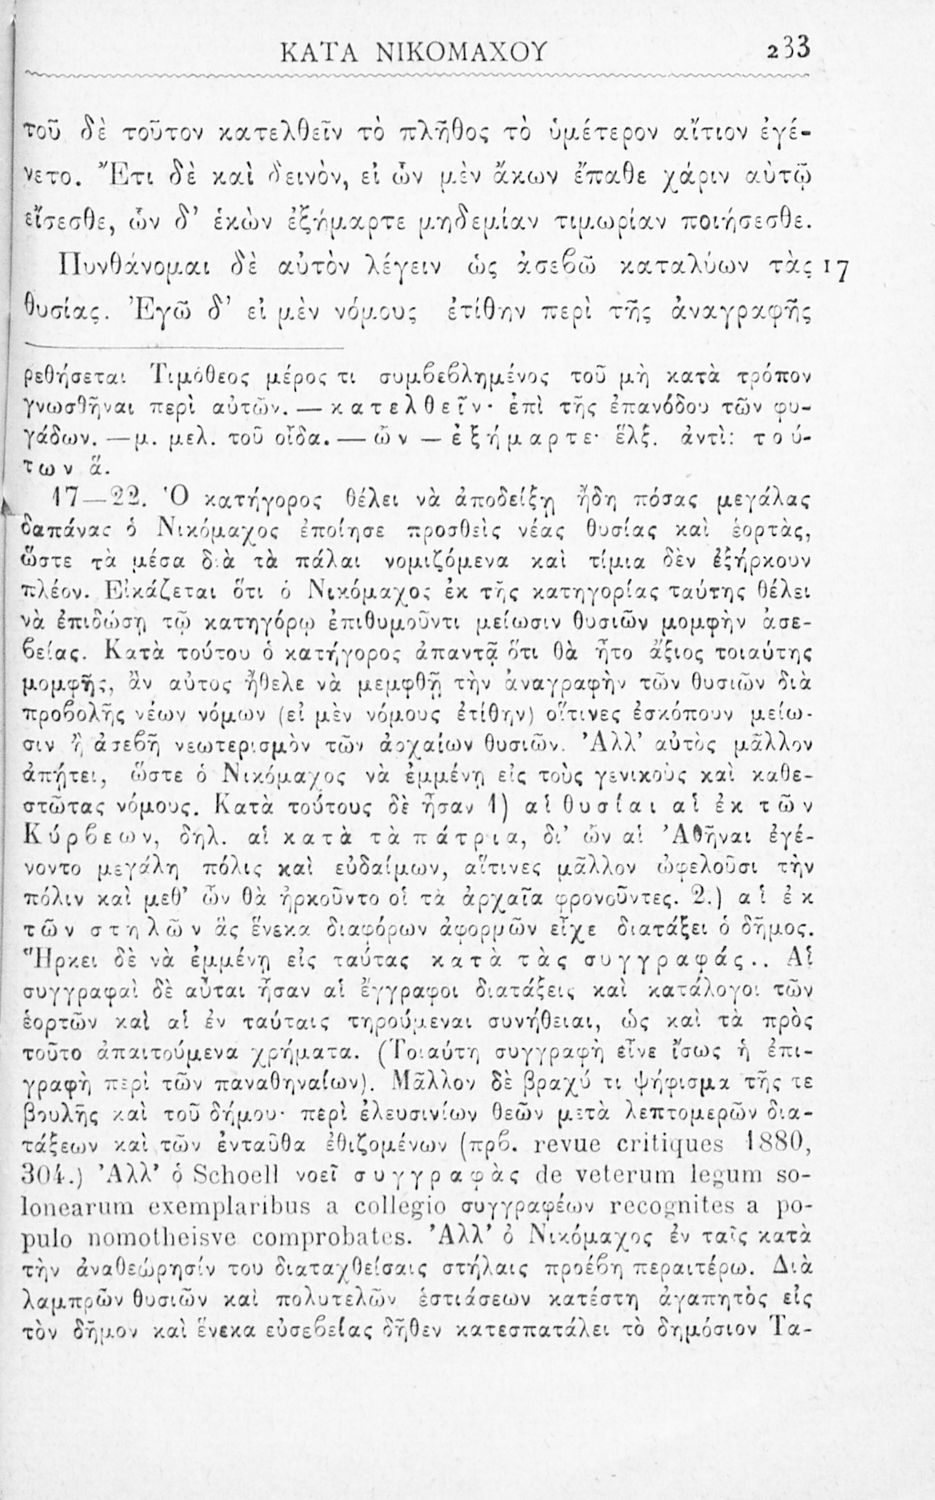 ΚΑΤΑ ΝΙΚΟΜΑΧΟΥ 233
τοῦ δὲ τοῦτον κατελθεῖν τὸ πλῆθος τὸ ὑμέτερον αἴτιον ἐγέ-
νετο. Ἔτι δὲ καὶ δεινὸν, εἰ ὧν μὲν ἄκων ἔπαθε χάριν αὐτῷ
εἴσεσθε, ὧν δ' ἑκὼν ἐξήμαρτε μηδεμίαν τιμωρίαν ποιήσεσθε.
Πυνθάνομαι δὲ αὐτὸν λέγειν ὡς ἀσεβῶ καταλύων τὰς 17
θυσίας. Ἐγῶ δ' εἰ μὲν νόμους ἐτίθην περὶ τῆς ἀναγραφῆς
ρεθήσεται Τιμόθεος μέρος τι συμβεβλημένος τοῦ μὴ κατὰ τρόπον
γνωσθῆναι περὶ αὐτῶν. — κατελθεῖν· ἐπὶ τῆς ἐπανόδου τῶν φυ-
γάδων. — μ. μελ. τοῦ οἶδα. — ὧν — ἐξήμαρτε· ἕλξ. ἀντὶ: τού-
των ἅ.
17—22. Ὁ κατήγορος θέλει νὰ ἀποδείξῃ ἤδη πόσας μεγάλας
δαπάνας ὁ Νικόμαχος ἐποίησε προσθεὶς νέας θυσίας καὶ ἑορτὰς,
ὥστε τὰ μέσα διὰ τὰ πάλαι νομιζόμενα καὶ τίμια δὲν ἐξήρκουν
πλέον. Εἰκάζεται ὅτι ὁ Νικόμαχος ἐκ τῆς κατηγορίας ταύτης θέλει
νὰ ἐπιδώσῃ τῷ κατηγόρῳ ἐπιθυμοῦντι μείωσιν θυσιῶν μομφὴν ἀσε-
βείας. Κατὰ τούτου ὁ κατήγορος ἀπαντᾷ ὅτι θὰ ἦτο ἄξιος τοιαύτης
μομφῆς, ἂν αὐτος ἤθελε νὰ μεμφθῇ τὴν ἀναγραφὴν τῶν θυσιῶν διὰ
προβολῆς νέων νόμων (εἰ μὲν νόμους ἐτίθην) οἵτινες ἐσκόπουν μείω-
σιν ἢ ἀσεβῆ νεωτερισμὸν τῶν ἀρχαίων θυσιῶν. Ἀλλ' αὐτὸς μᾶλλον
ἀπῄτει, ὥστε ὁ Νικόμαχος νὰ ἐμμένῃ εἰς τοὺς γενικοὺς καὶ καθε-
στῶτας νόμους. Κατὰ τούτους δὲ ἦσαν 1) αἱ θυσίαι αἱ ἐκ τῶν
Κύρβεων, δηλ. αἱ κατὰ τὰ πάτρια, δι' ὧν αἱ Ἀθῆναι ἐγέ-
νοντο μεγάλη πόλις καὶ εὐδαίμων, αἵτινες μᾶλλον ὠφελοῦσι τὴν
πόλιν καὶ μεθ' ὧν θὰ ἠρκοῦντο οἱ τὰ ἀρχαῖα φρονοῦντες. 2.) αἱ ἐκ
τῶν στηλῶν ἃς ἕνεκα διαφόρων ἀφορμῶν εἶχε διατάξει ὁ δῆμος.
Ἤρκει δὲ νὰ ἐμμένῃ εἰς ταύτας κατὰ τὰς συγγραφάς.. Αἱ
συγγραφαὶ δὲ αὗται ἦσαν αἱ ἔγγραφοι διατάξεις καὶ κατάλογοι τῶν
ἑορτῶν καὶ αἱ ἐν ταύταις τηρούμεναι συνήθειαι, ὡς καὶ τὰ πρὸς
τοῦτο ἀπαιτούμενα χρήματα. (Τοιαύτη συγγραφὴ εἶνε ἴσως ἡ ἐπι-
γραφὴ περὶ τῶν παναθηναίων). Μᾶλλον δὲ βραχύ τι ψήφισμα τῆς τε
βουλῆς καὶ τοῦ δήμου· περὶ ἐλευσινίων θεῶν μετὰ λεπτομερῶν δια-
τάξεων καὶ τῶν ἐνταῦθα ἐθιζομένων (πρβ. revue critiques 1880,
304.) Ἀλλ' ὁ Schoell νοεῖ συγγραφὰς de veterum legum so-
lonearum exemplaribus a collegio συγγραφέων recognites a po-
pulo nomotheisve comprobates. Ἀλλ' ὁ Νικόμαχος ἐν ταῖς κατὰ
τὴν ἀναθεώρησίν του διαταχθείσαις στήλαις προέβη περαιτέρω. Διὰ
λαμπρῶν θυσιῶν καὶ πολυτελῶν ἑστιάσεων κατέστη ἀγαπητὸς εἰς
τὸν δῆμον καὶ ἕνεκα εὐσεβείας δῆθεν κατεσπατάλει τὸ δημόσιον Τα-